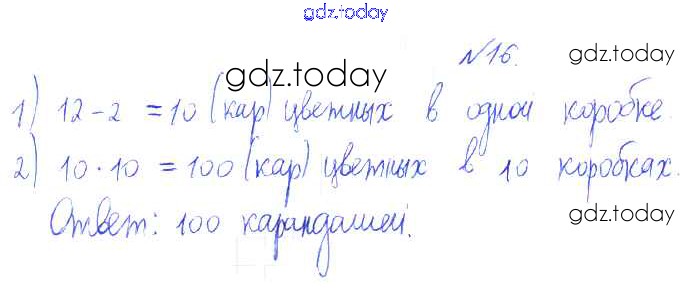 gdz.today
№16.
gdz.today
gdz.today
1) 12-2 = 10 (кар) цветных в одной коробке.
2) 10·10 = 100 (кар) цветных в 10 коробках.
Ответ: 100 карандашей.
gdz.today